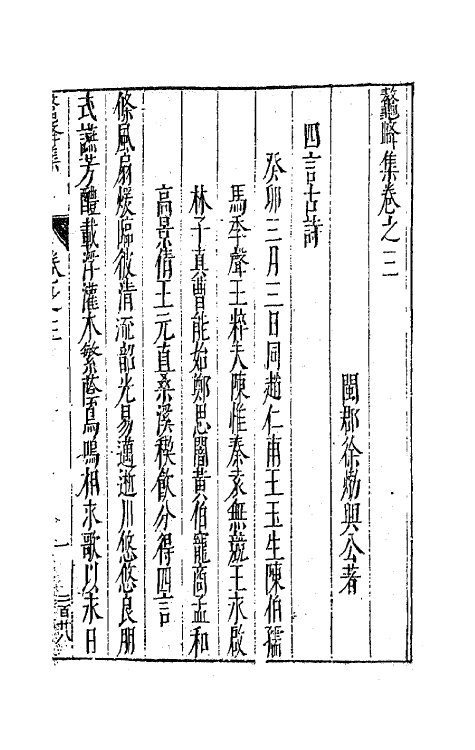 鼇峰集卷之三
閩郡徐𤊹興公著
四言古詩
癸卯三月三日同趙仁甫王玉生陳伯孺
馬季聲王粹夫陳惟秦袁無競王永啟
林子真曹能始鄭思闇黃伯寵商孟和
高景倩王元直桑溪稧飲分得四言
條風扇煖臨彼清流韶光易邁逝川悠悠良朋
式讌芳醴載浮灌木繁蔭鳥鳴相求歌以永日
卷之三